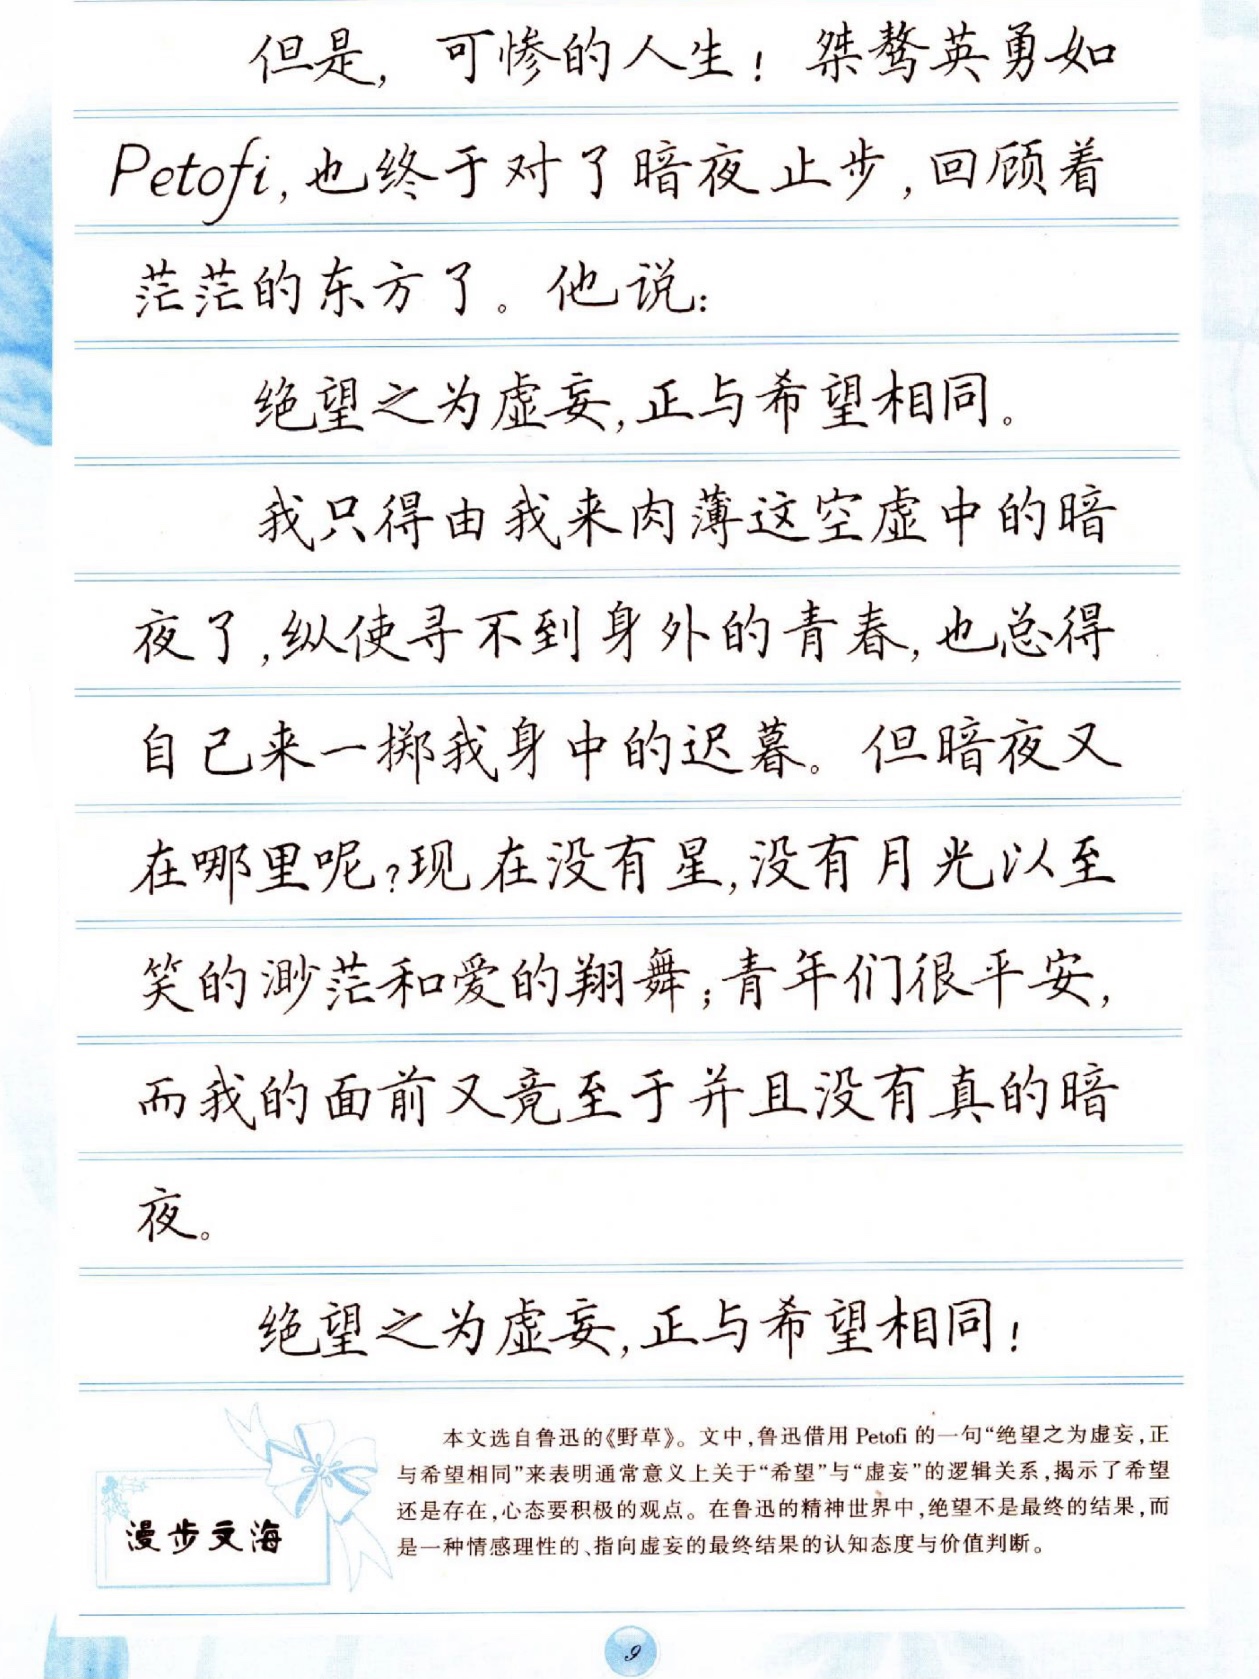 但是，可惨的人生！桀骜英勇如
Petofi，也终于对了暗夜止步，回顾着
茫茫的东方了。他说：
绝望之为虚妄，正与希望相同。
我只得由我来肉薄这空虚中的暗
夜了，纵使寻不到身外的青春，也总得
自己来一掷我身中的迟暮。但暗夜又
在哪里呢？现在没有星，没有月光以至
笑的渺茫和爱的翔舞；青年们很平安，
而我的面前又竟至于并且没有真的暗
夜。
绝望之为虚妄，正与希望相同！
漫步文海
本文选自鲁迅的《野草》。文中，鲁迅借用 Petofi 的一句“绝望之为虚妄，正
与希望相同”来表明通常意义上关于“希望”与“虚妄”的逻辑关系，揭示了希望
还是存在，心态要积极的观点。在鲁迅的精神世界中，绝望不是最终的结果，而
是一种情感理性的、指向虚妄的最终结果的认知态度与价值判断。
9